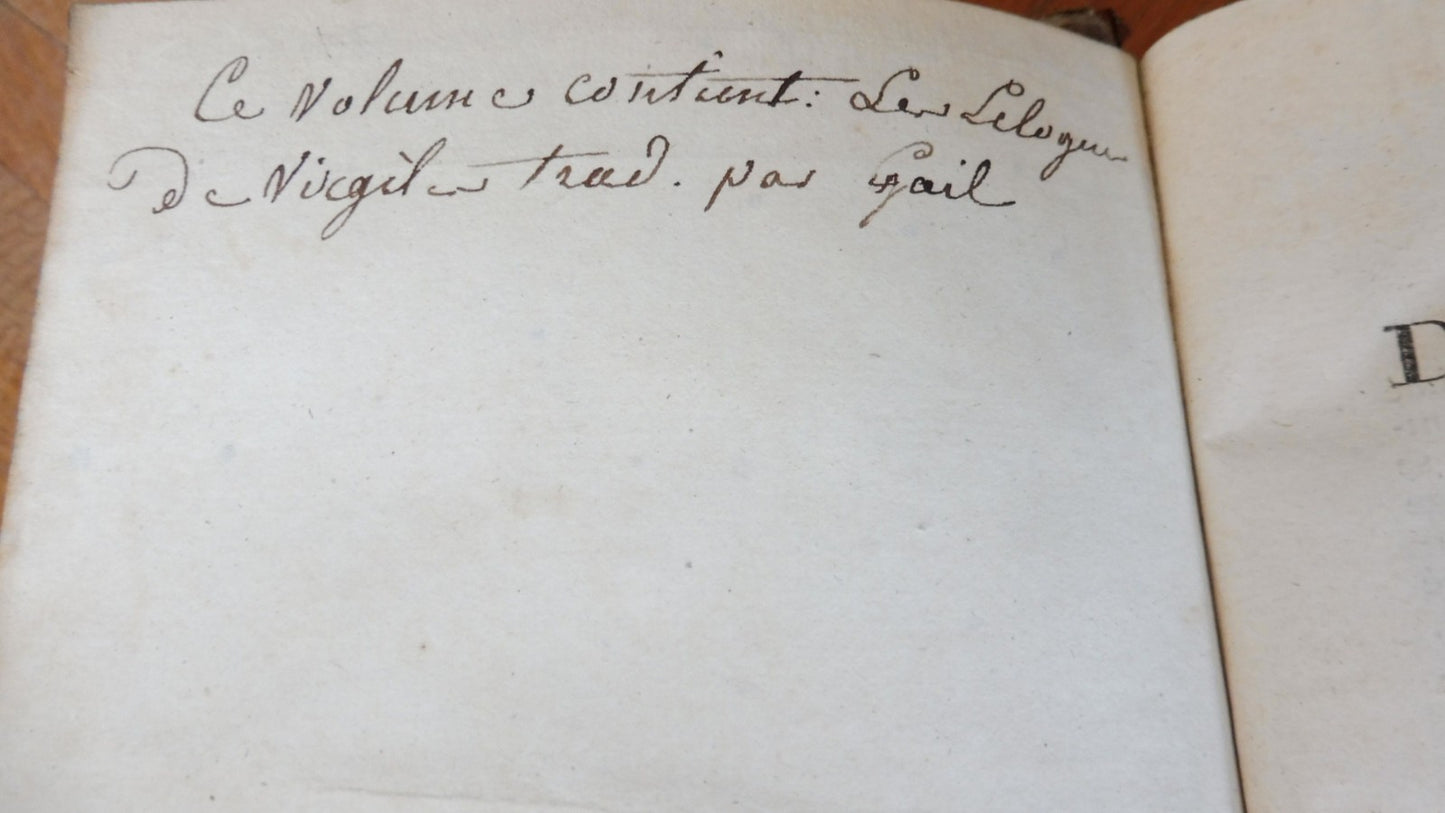 Ce volume contient: Les Eclogues
De Virgile trad. par Gail
D